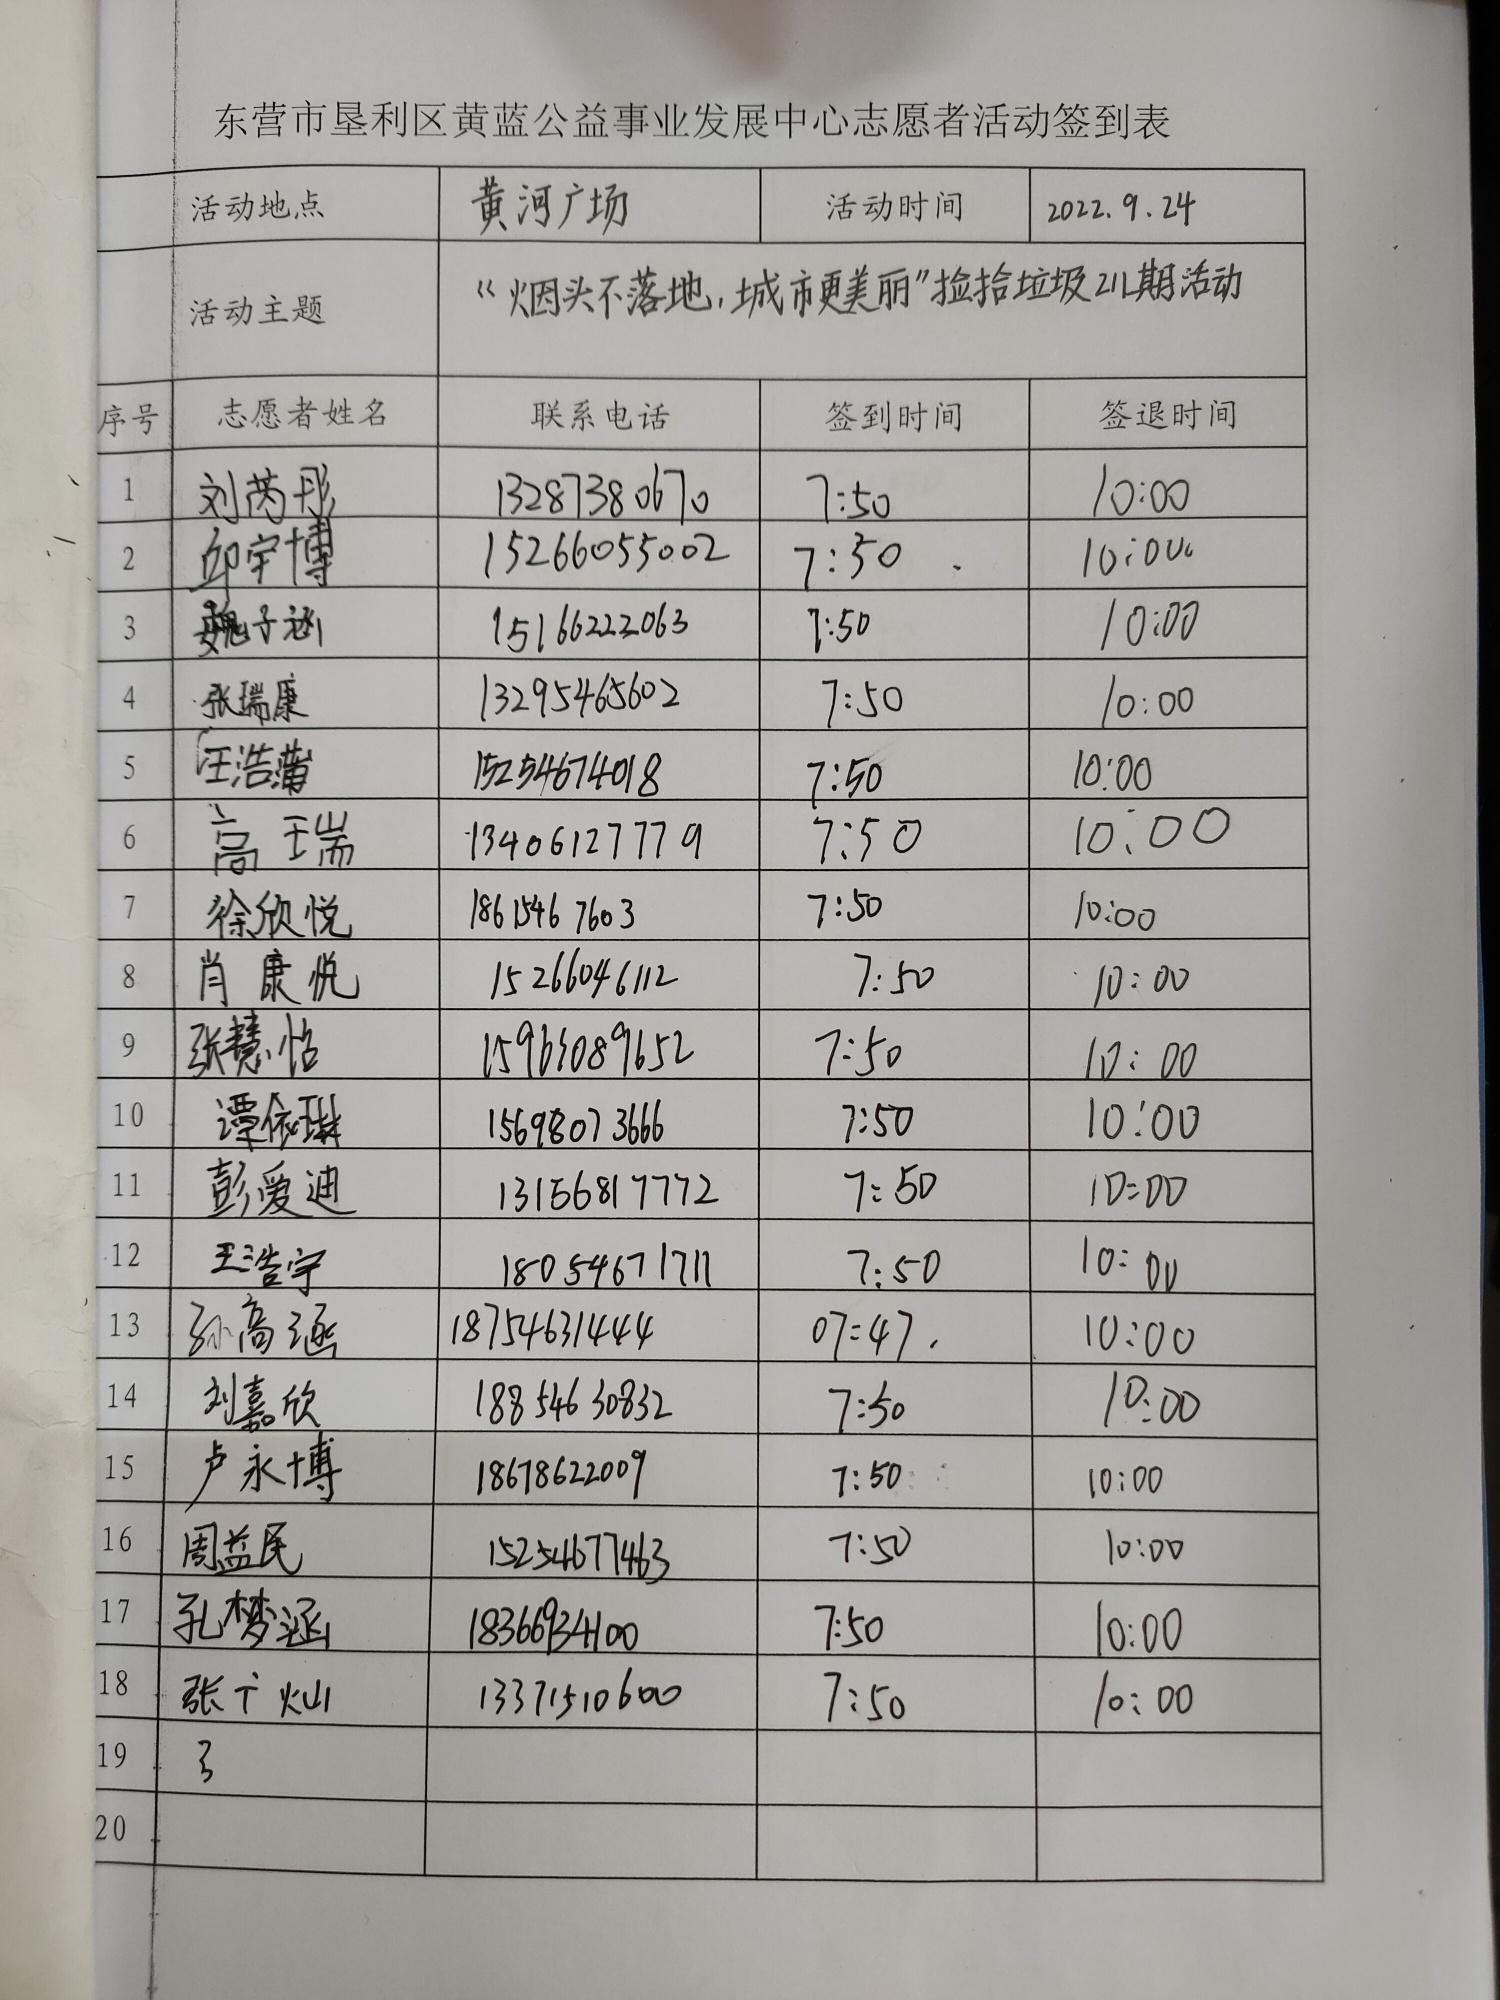 东营市垦利区黄蓝公益事业发展中心志愿者活动签到表
活动地点 黄河广场 活动时间 2022.9.24
活动主题 “烟头不落地，城市更美丽”捡拾垃圾211期活动
序号 志愿者姓名 联系电话 签到时间 签退时间
1 刘芮彤 13287380670 7:50 10:00
2 邱宇博 15266055002 7:50 10:00
3 魏子涵 15166222063 7:50 10:00
4 张瑞康 13295465602 7:50 10:00
5 汪浩蒲 15254674018 7:50 10:00
6 高王瑞 13406127779 7:50 10:00
7 徐欣悦 18615467603 7:50 10:00
8 肖康悦 15266046112 7:50 10:00
9 张慧怡 15963089652 7:50 10:00
10 谭依琳 15698073666 7:50 10:00
11 彭爱迪 13156817772 7:50 10=00
12 王浩宇 18054671711 7:50 10:00
13 孙高涵 18754631444 07=47. 10:00
14 刘嘉欣 18854630832 7:50 10:00
15 卢永博 18678622009 7:50 10:00
16 周益民 15254677463 7:50 10:00
17 孔梦涵 18366934100 7:50 10:00
18 张 13371510600 7:50 10:00
19
20